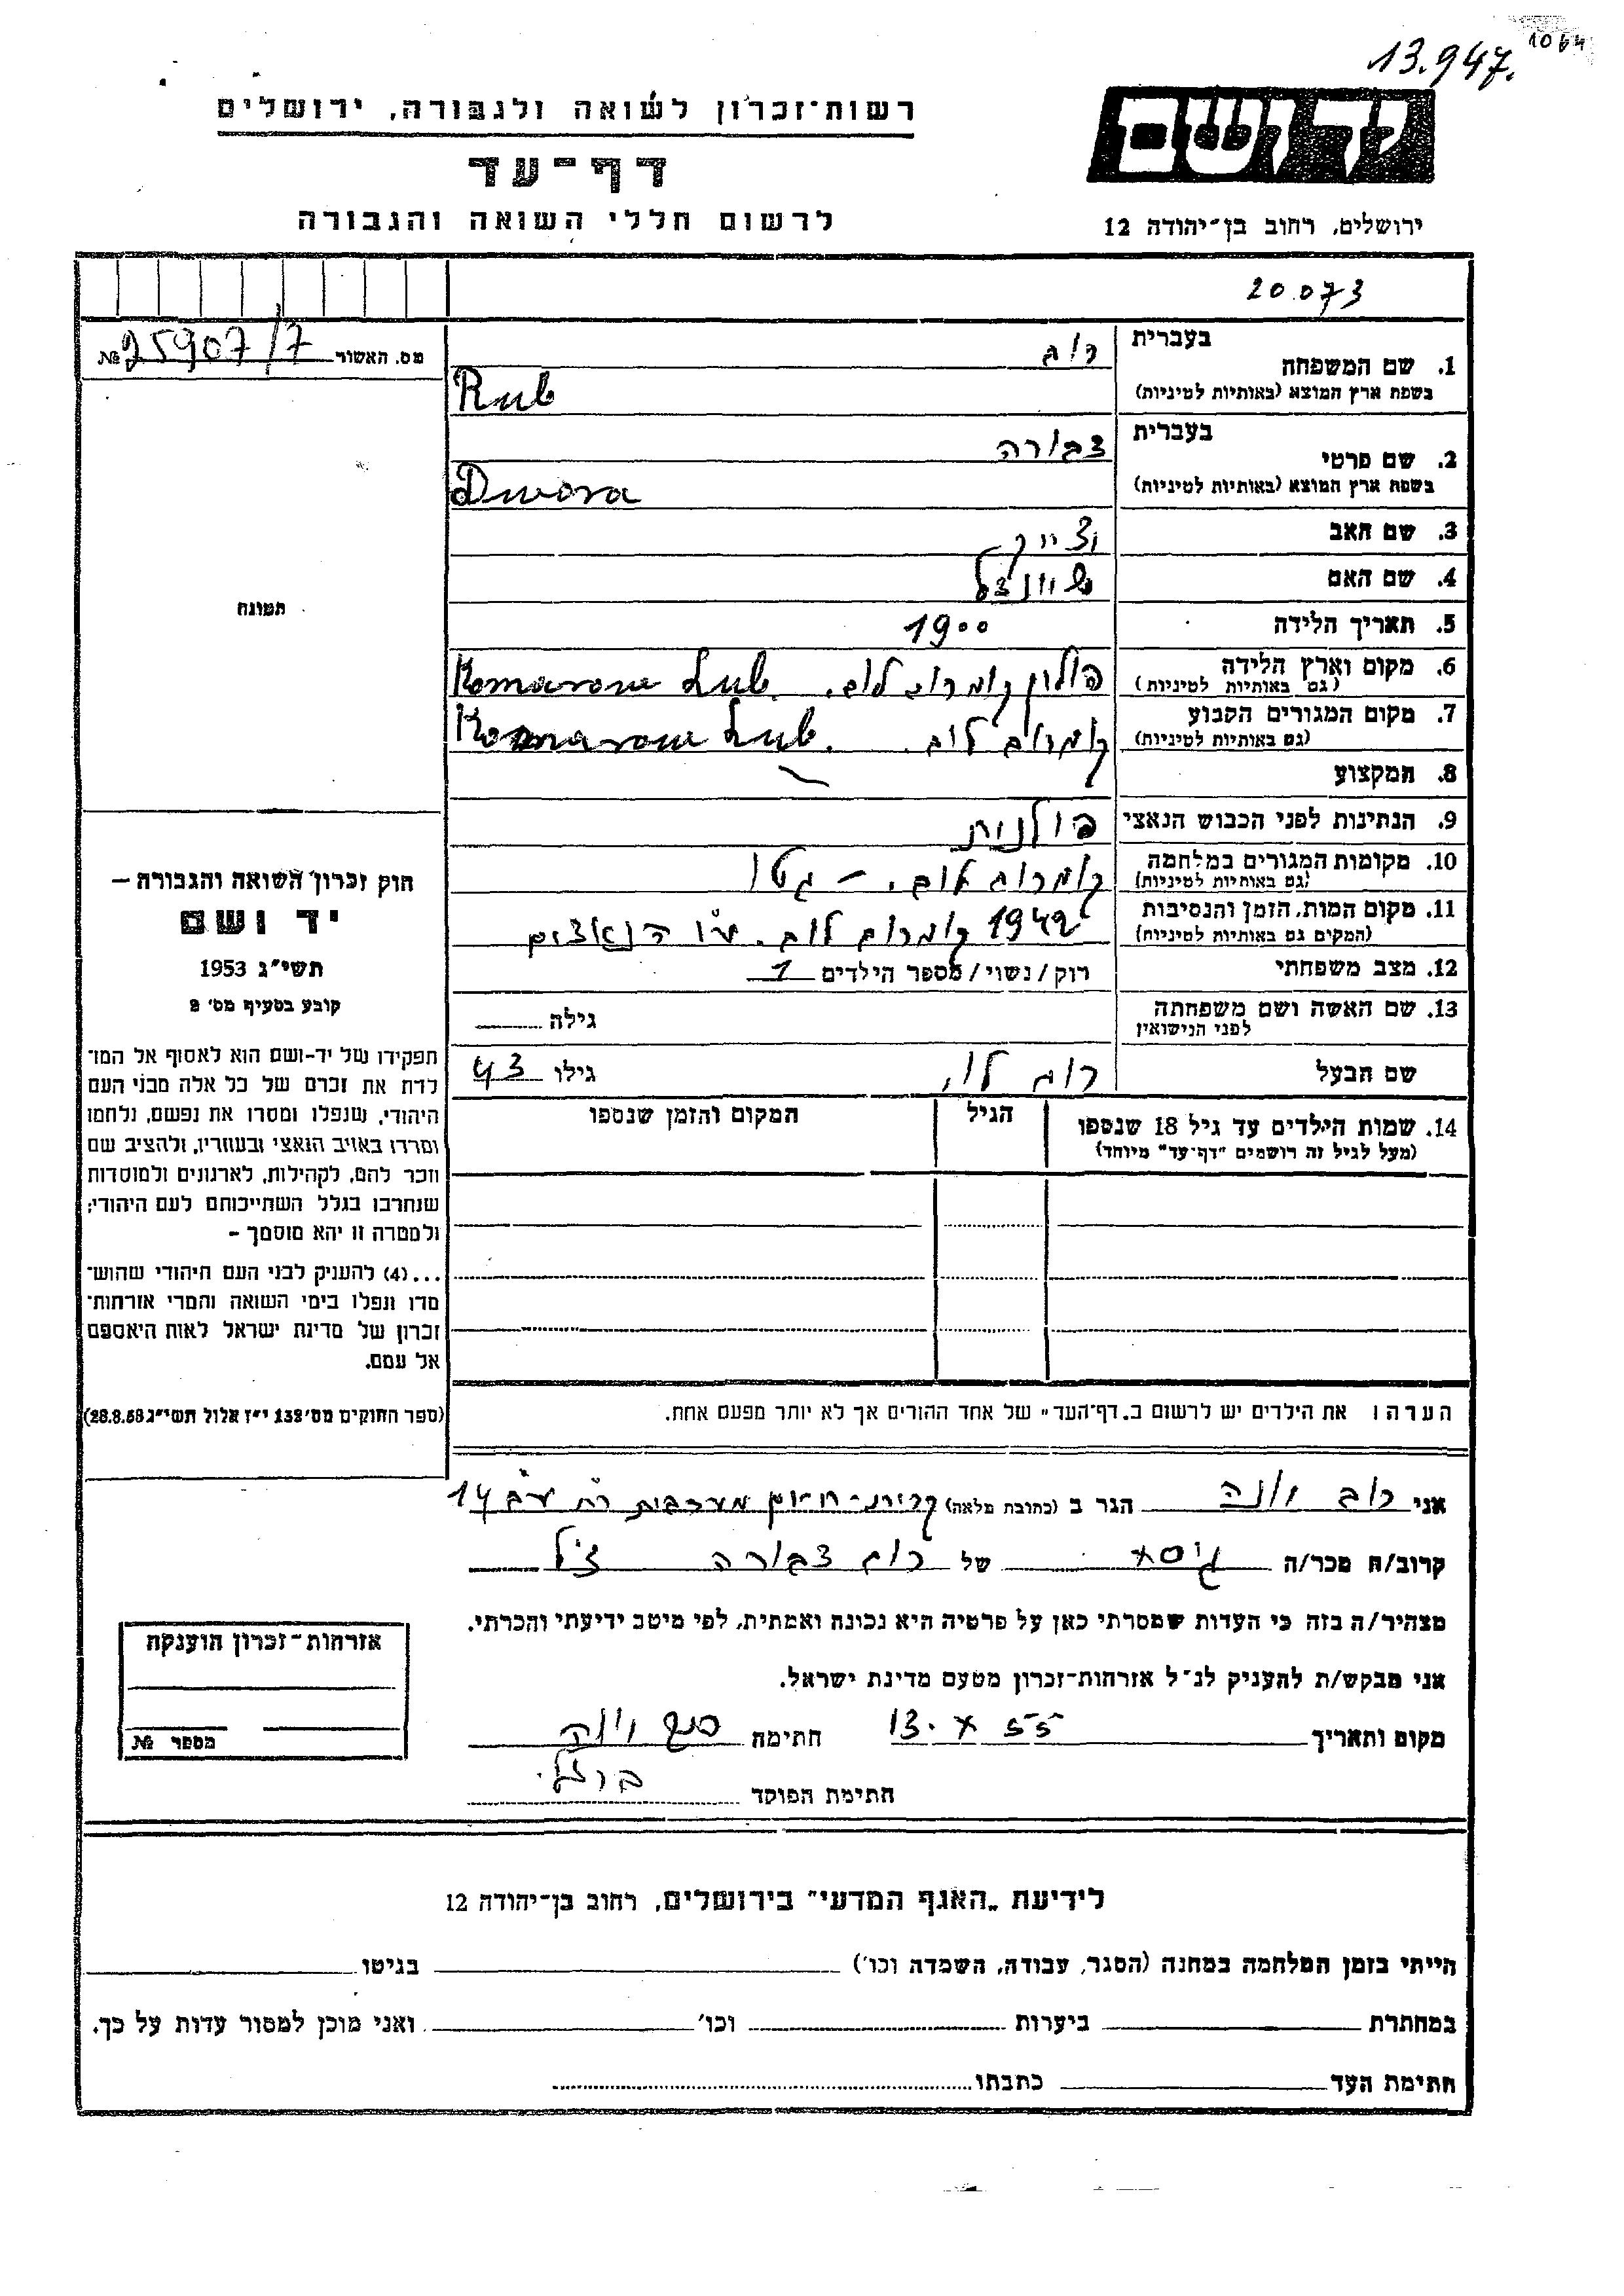 13.947.
1064
יד ושם
ירושלים, רחוב בן-יהודה 12
רשות-זכרון לשואה ולגבורה, ירושלים
דף-עד
לרשום חללי השואה והגבורה
20.073
מס. האשור № 25907/7
תמונה
חוק זכרון השואה והגבורה —
יד ושם
תשי״ג 1953
קובע בסעיף מס׳ 2
תפקידו של יד-ושם הוא לאסוף אל המו־
לדת את זכרם של כל אלה מבני העם
היהודי, שנפלו ומסרו את נפשם, נלחמו
ומרדו באויב הנאצי ובעוזריו, ולהציב שם
וזכר להם, לקהילות, לארגונים ולמוסדות
שנחרבו בגלל השתייכותם לעם היהודי;
ולמטרה זו יהא מוסמך –
...(4) להעניק לבני העם היהודי שהוש־
מדו ונפלו בימי השואה והמרי אזרחות־
זכרון של מדינת ישראל לאות היאספם
אל עמם.
(ספר החוקים מס׳ 132 י״ז אלול תשי״ג 28.8.53)
1. שם המשפחה בעברית רוב
בשפת ארץ המוצא (באותיות לטיניות) Rub
2. שם פרטי בעברית דבורה
בשפת ארץ המוצא (באותיות לטיניות) Dwora
3. שם האב
4. שם האם
5. תאריך הלידה 1900
6. מקום וארץ הלידה (גם באותיות לטיניות) פולון קומרוב לוב. Komarow Lub.
7. מקום המגורים הקבוע (גם באותיות לטיניות) קומרוב לוב. Komarow Lub.
8. המקצוע —
9. הנתינות לפני הכבוש הנאצי פולנית
10. מקומות המגורים במלחמה (גם באותיות לטיניות) קומרוב לוב. – גטו
11. מקום המות, הזמן והנסיבות (המקום גם באותיות לטיניות) 1942 קומרוב לוב. ע״י הנאצים
12. מצב משפחתי רוק/נשוי/מספר הילדים 1
13. שם האשה ושם משפחתה לפני הנישואין גילה
שם הבעל רוב לוי גילו 43
14. שמות הילדים עד גיל 18 שנספו הגיל המקום והזמן שנספו
(מעל לגיל זה רושמים "דף-עד" מיוחד)
הערה: את הילדים יש לרשום ב„דף-העד" של אחד ההורים אך לא יותר מפעם אחת.
אני רוב יונה הגר ב (כתובת מלאה) קרית-חיים מערבית רח 14
קרוב/ה מכר/ה גיסא של רוב דבורה ז״ל
מצהיר/ה בזה כי העדות שמסרתי כאן על פרטיה היא נכונה ואמתית, לפי מיטב ידיעתי והכרתי.
אני מבקש/ת להעניק לנ״ל אזרחות-זכרון מטעם מדינת ישראל.
מקום ותאריך 13. X 55 חתימה רוב יונה
חתימת הפוקד
אזרחות-זכרון הוענקה
מספר №
לידיעת „האגף המדעי" בירושלים, רחוב בן-יהודה 12
הייתי בזמן המלחמה במחנה (הסגר, עבודה, השמדה וכו׳) בגיטו
במחתרת ביערות וכו׳ ואני מוכן למסור עדות על כך.
חתימת העד כתבתו